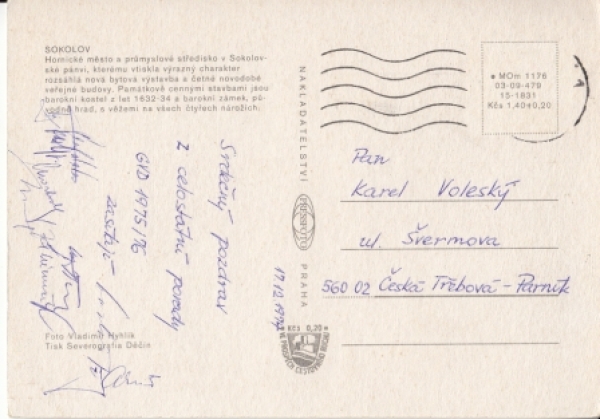 SOKOLOV
Hornické město a průmyslové středisko v Sokolov-
ské pánvi, kterému vtiskla výrazný charakter
rozsáhlá nová bytová výstavba a četné novodobé
veřejné budovy. Památkově cennými stavbami jsou
barokní kostel z let 1632-34 a barokní zámek, pů-
vodně hrad, s věžemi na všech čtyřech nárožích.
Srdečný pozdrav
z celostátní porady
GVD 1975/76
zasílají
Foto Vladimír Hyhlík
Tisk Severografia Děčín
NAKLADATELSTVÍ
PRESSFOTO
PRAHA
Kčs 0,20
VE PROSPĚCH CESTOVNÍHO RUCHU
MOm 1176
03-09-479
15-1831
Kčs 1,40+0,20
Pan
Karel Voleský
ul. Švermova
560 02 Česká Třebová - Parník